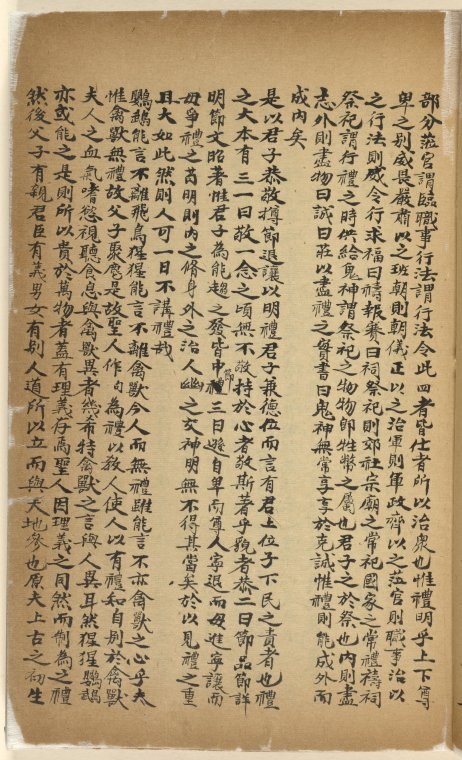 部分蒞官謂臨職事行法謂行法令此四者皆仕者所以治衆也惟禮明乎上下尊
卑之别威畏嚴齋以之班朝則朝儀正以之治軍則軍政齊以之蒞官則職事治以
之行法則威令行求福曰禱報賽曰祠祭祀則郊社宗廟之常祀國家之常禮禱祠
祭祀謂行禮之時供給鬼神謂祭祀之物物即牲幣之屬也君子之於祭也内則盡
志外則盡物曰誠曰莊以盡禮之實書曰鬼神無常享享於克誠惟禮則能成外而
成内矣
是以君子恭敬撙節退讓以明禮君子兼德位而言有君上位子下民之責者也禮
之大本有三一曰敬一念之頃無不敬持於心者敬斯著乎貌者恭二曰節品節詳
明節文昭著惟君子為能趨之發皆中節禮三曰遜自卑而尊人寧退而毋進寧讓而
毋爭禮之苟明則内之脩身外之治人幽之交神明無不得其當矣於以見禮之重
且大如此然則人可一日不講禮哉
鸚鵡能言不離飛鳥猩猩能言不離禽獸今人而無禮雖能言不亦禽獸之心乎夫
惟禽獸無禮故父子聚麀是故聖人作為禮以教人使人以有禮知自别於禽獸
夫人之血氣嗜慾視聽食息與禽獸異者幾希特禽獸之言與人異耳然猩猩鸚鵡
亦或能之是則所以貴於萬物者蓋有理義存焉聖人因理義之同然而制為之禮
然後父子有親君臣有義男女有别人道所以立而與天地參也原夫上古之初生